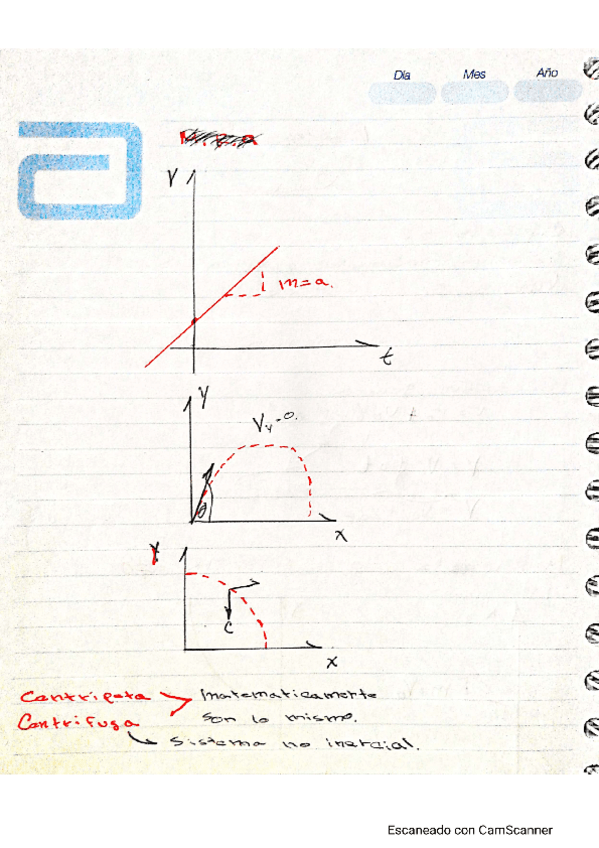 Día Mes Año
V
m=a.
t
Y
Vy=0.
θ
x
Y
C
x
Centripeta Matematicamente
Centrifuga son lo mismo.
Sistema no inercial.
Escaneado con CamScanner